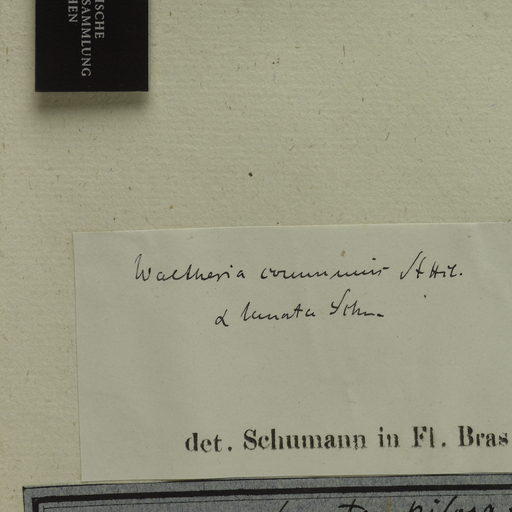 ISCHE
SAMMLUNG
HEN
Waltheria communis St Hil.
α lanata Schm.
det. Schumann in Fl. Bras
pilosa